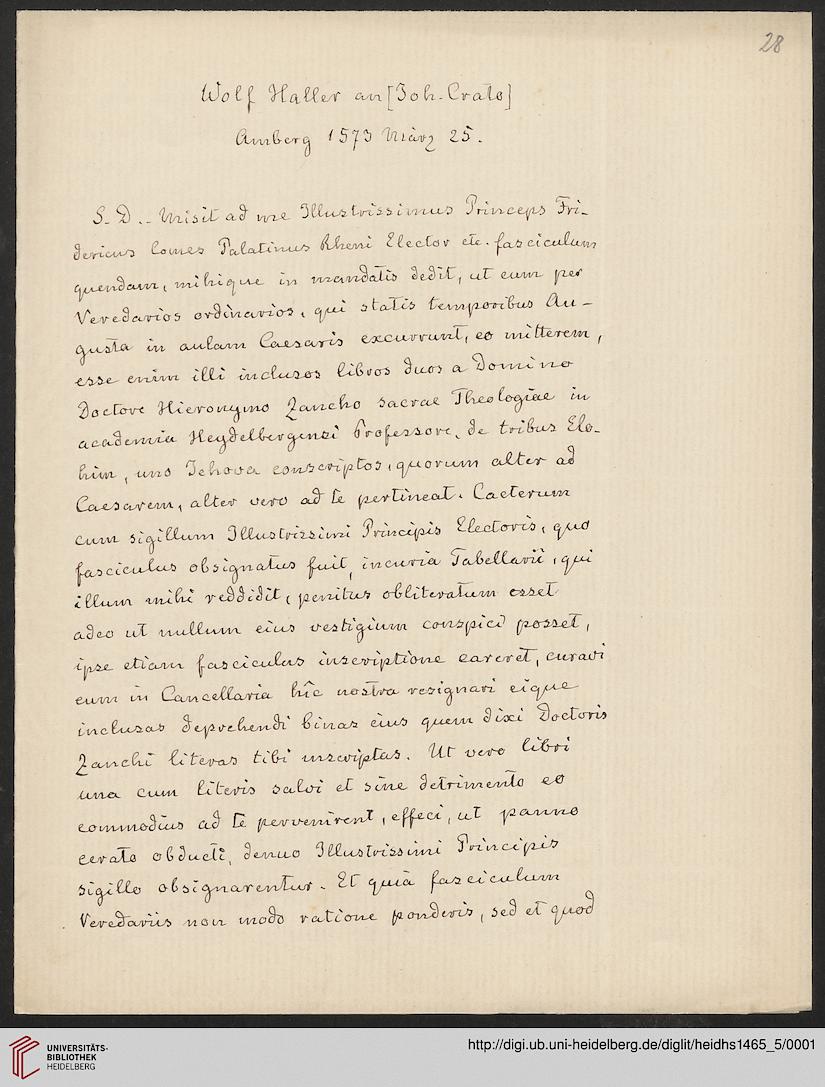 28
Wolf Haller an [Joh. Crato]
Amberg 1573 März 25.
S. D. - Misit ad me Illustrissimus Princeps Fri-
dericus Comes Palatinus Rheni Elector etc. fasciculum
quendam, mihique in mandatis dedit, ut eum per
Veredarios ordinarios, qui statis temporibus Au-
gusta in aulam Caesaris excurrunt, eo mitterem,
esse enim illi inclusos libros duos a Domino
Doctore Hieronymo Zancho sacrae Theologiae in
academia Heydelbergensi Professore, de tribus Elo-
him, uno Jehova conscriptos, quorum alter ad
Caesarem, alter vero ad te pertineat. Caeterum
cum sigillum Illustrissimi Principis Electoris, quo
fasciculus obsignatus fuit, incuria Tabellarii, qui
illum mihi reddidit, penitus obliteratum esset
adeo ut nullum eius vestigium conspici posset,
ipse etiam fasciculus inscriptione careret, curavi
eum in Cancellaria hîc nostra resignari eique
inclusas deprehendi binas eius quem dixi Doctoris
Zanchi literas tibi inscriptas. Ut vero libri
una cum literis salvi et sine detrimento eo
commodius ad te pervenirent, effeci, ut panno
cerato obducti, denuo Illustrissimi Principis
sigillo obsignarentur. Et quia fasciculum
Veredariis non modo ratione ponderis, sed et quod
UNIVERSITÄTS-
BIBLIOTHEK
HEIDELBERG
http://digi.ub.uni-heidelberg.de/diglit/heidhs1465_5/0001